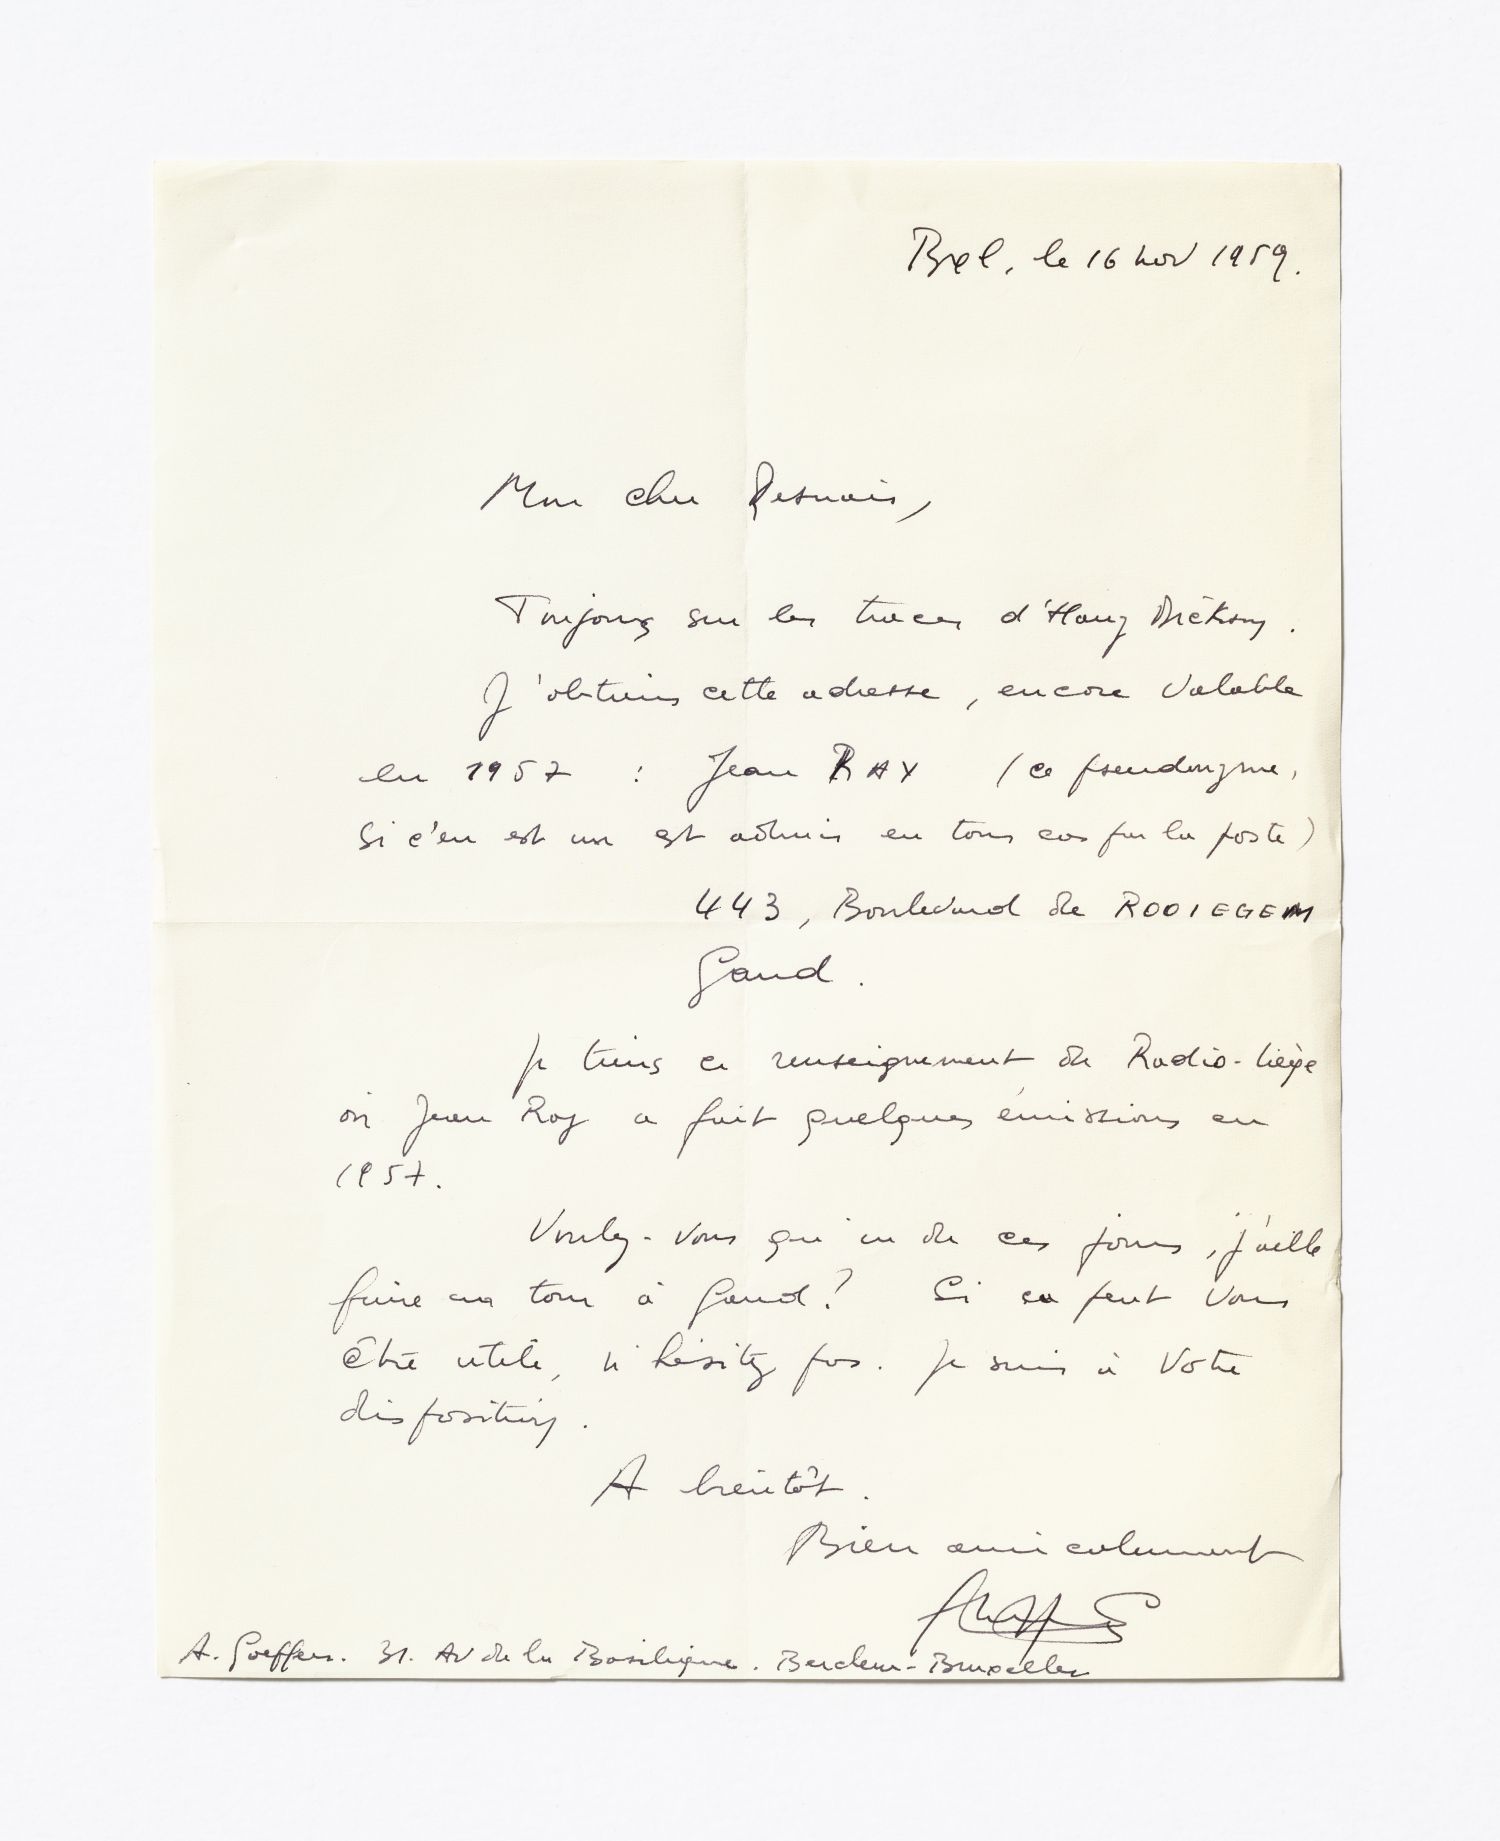 Bxl, le 16 nov 1959.
Mon cher Resnais,
Toujours sur les traces d'Harry Dickson.
J'obtiens cette adresse, encore valable
en 1957 : Jean RAY (ce pseudonyme,
si c'en est un est admis en tous cas par la poste)
443, Boulevard de ROOIEGEM
Gand.
Je tiens ce renseignement de Radio-Liège
où Jean Ray a fait quelques émissions en
1957.
Voulez-vous qu'un de ces jours, j'aille
faire un tour à Gand? Si ça peut vous
être utile, n'hésitez pas. Je suis à votre
disposition.
A bientôt.
Bien amicalement
A. Goeffers. 31. Av de la Basilique. Berchem-Bruxelles